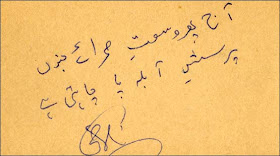 آج پھر وسعتِ صحرائے جنوں
پرسشِ آبلہ پا چاہتی ہے